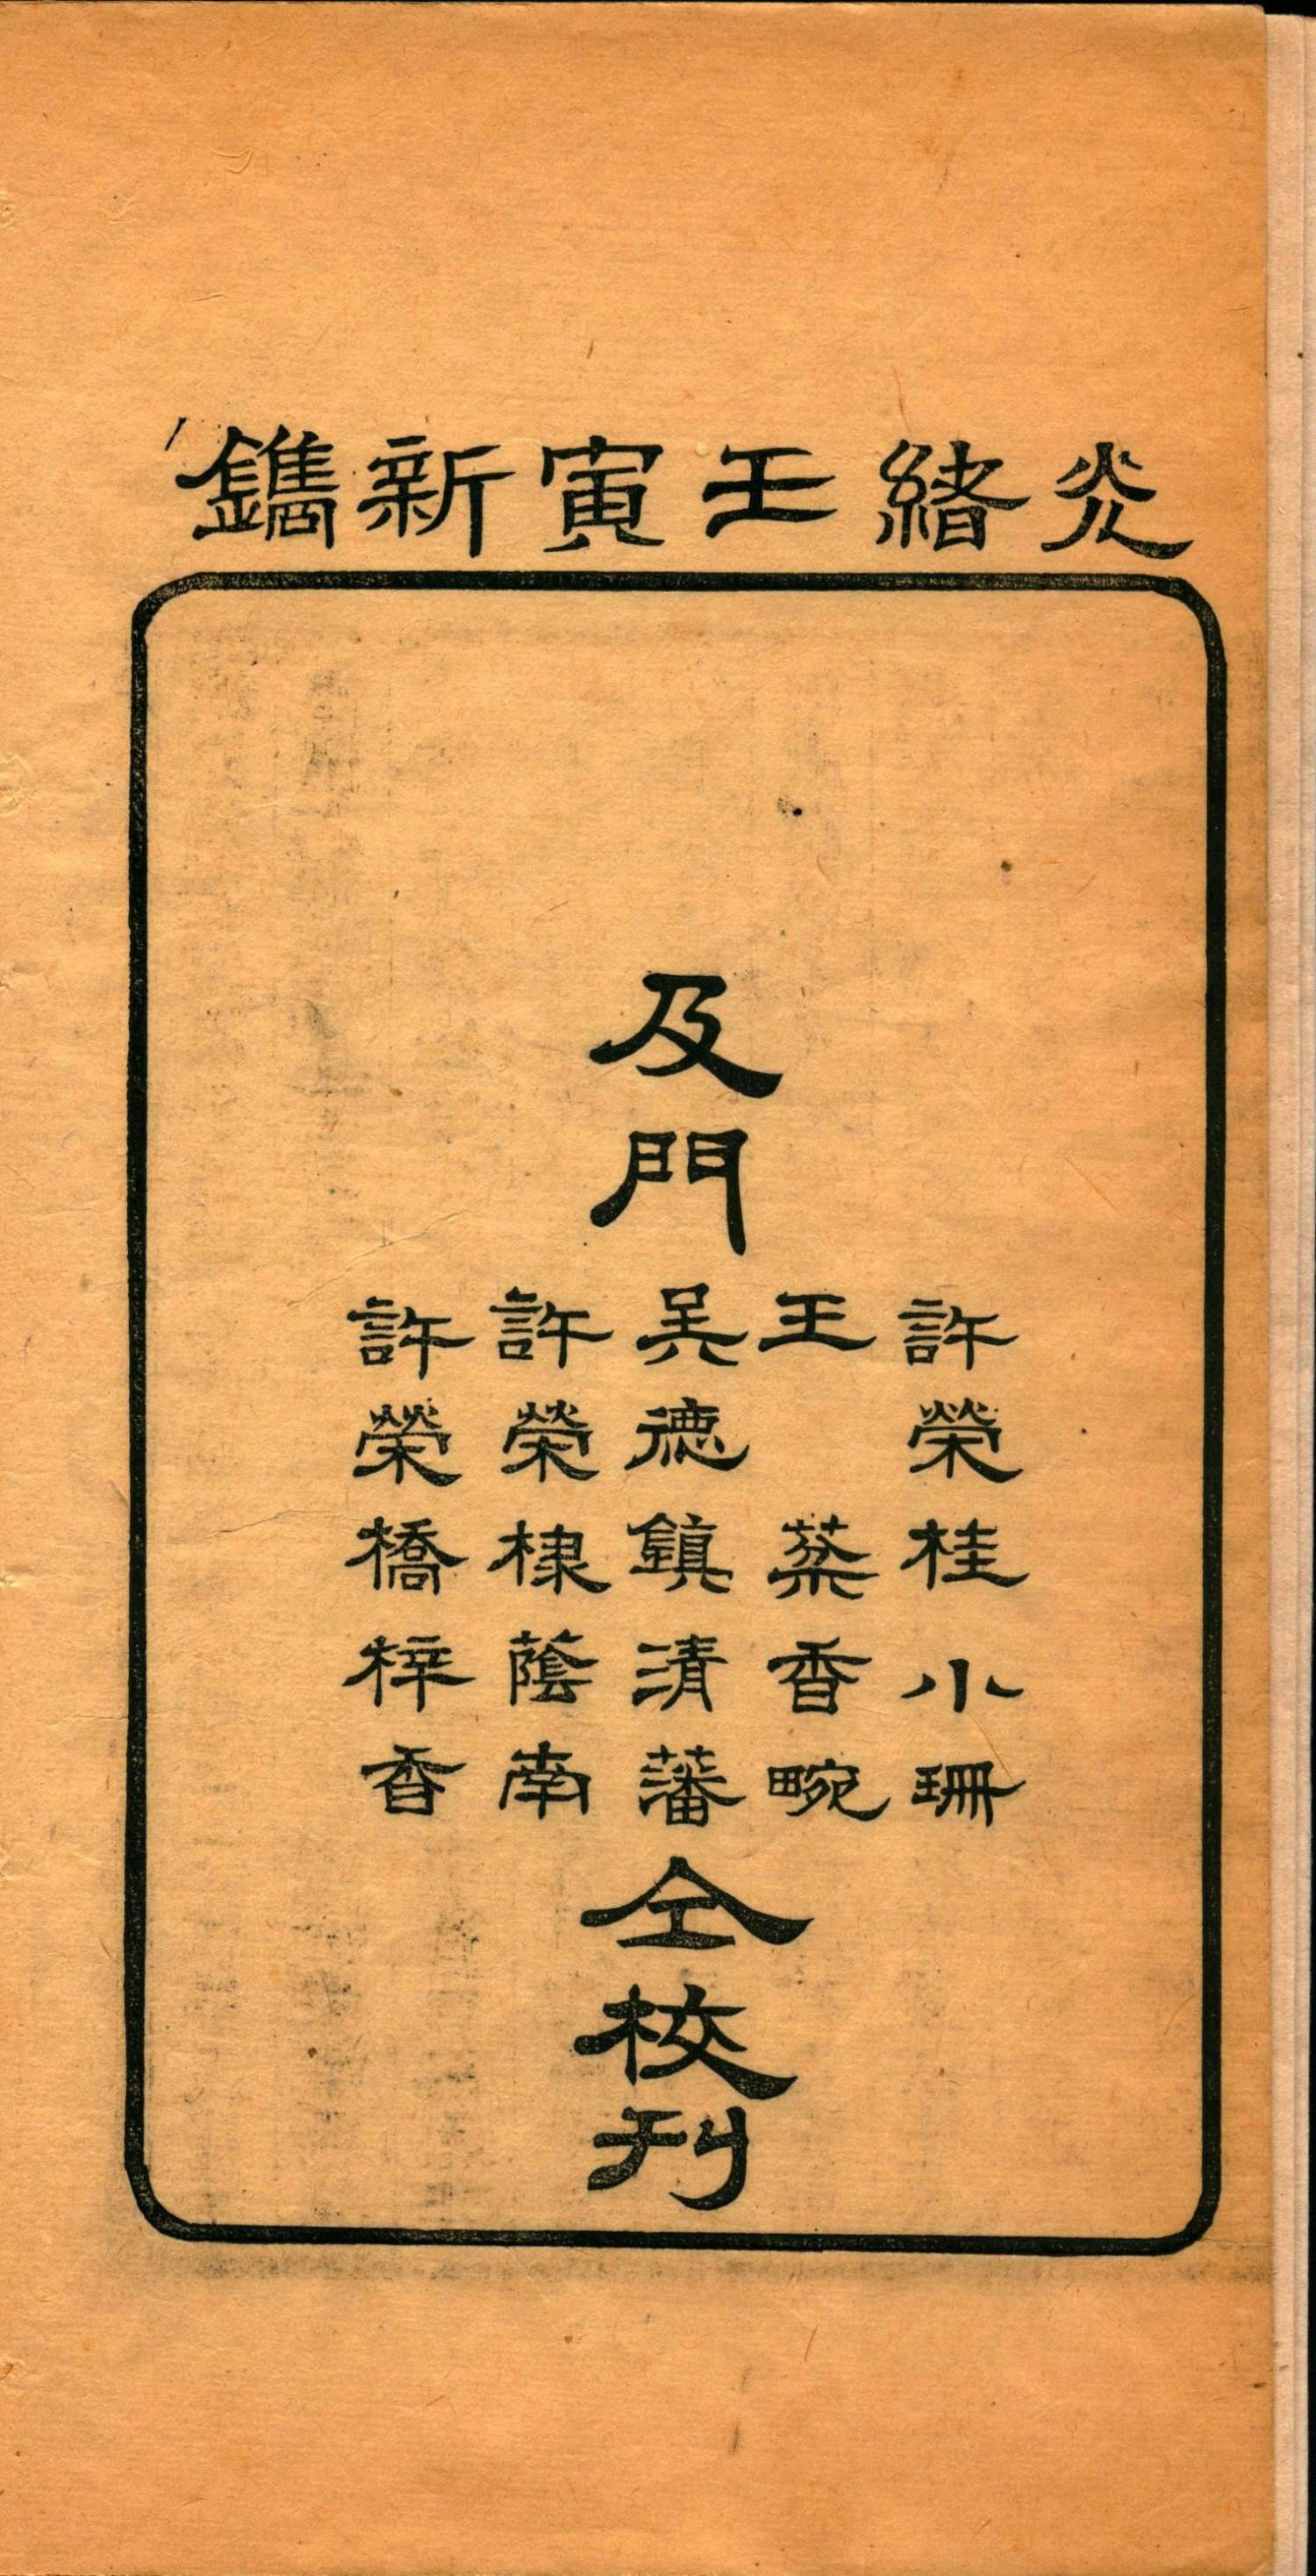 灮緒壬寅新鐫
及門
許榮桂小珊
王棻香畹
吳德鎮清藩
許榮棣蔭南
許榮橋梓香
仝校刊